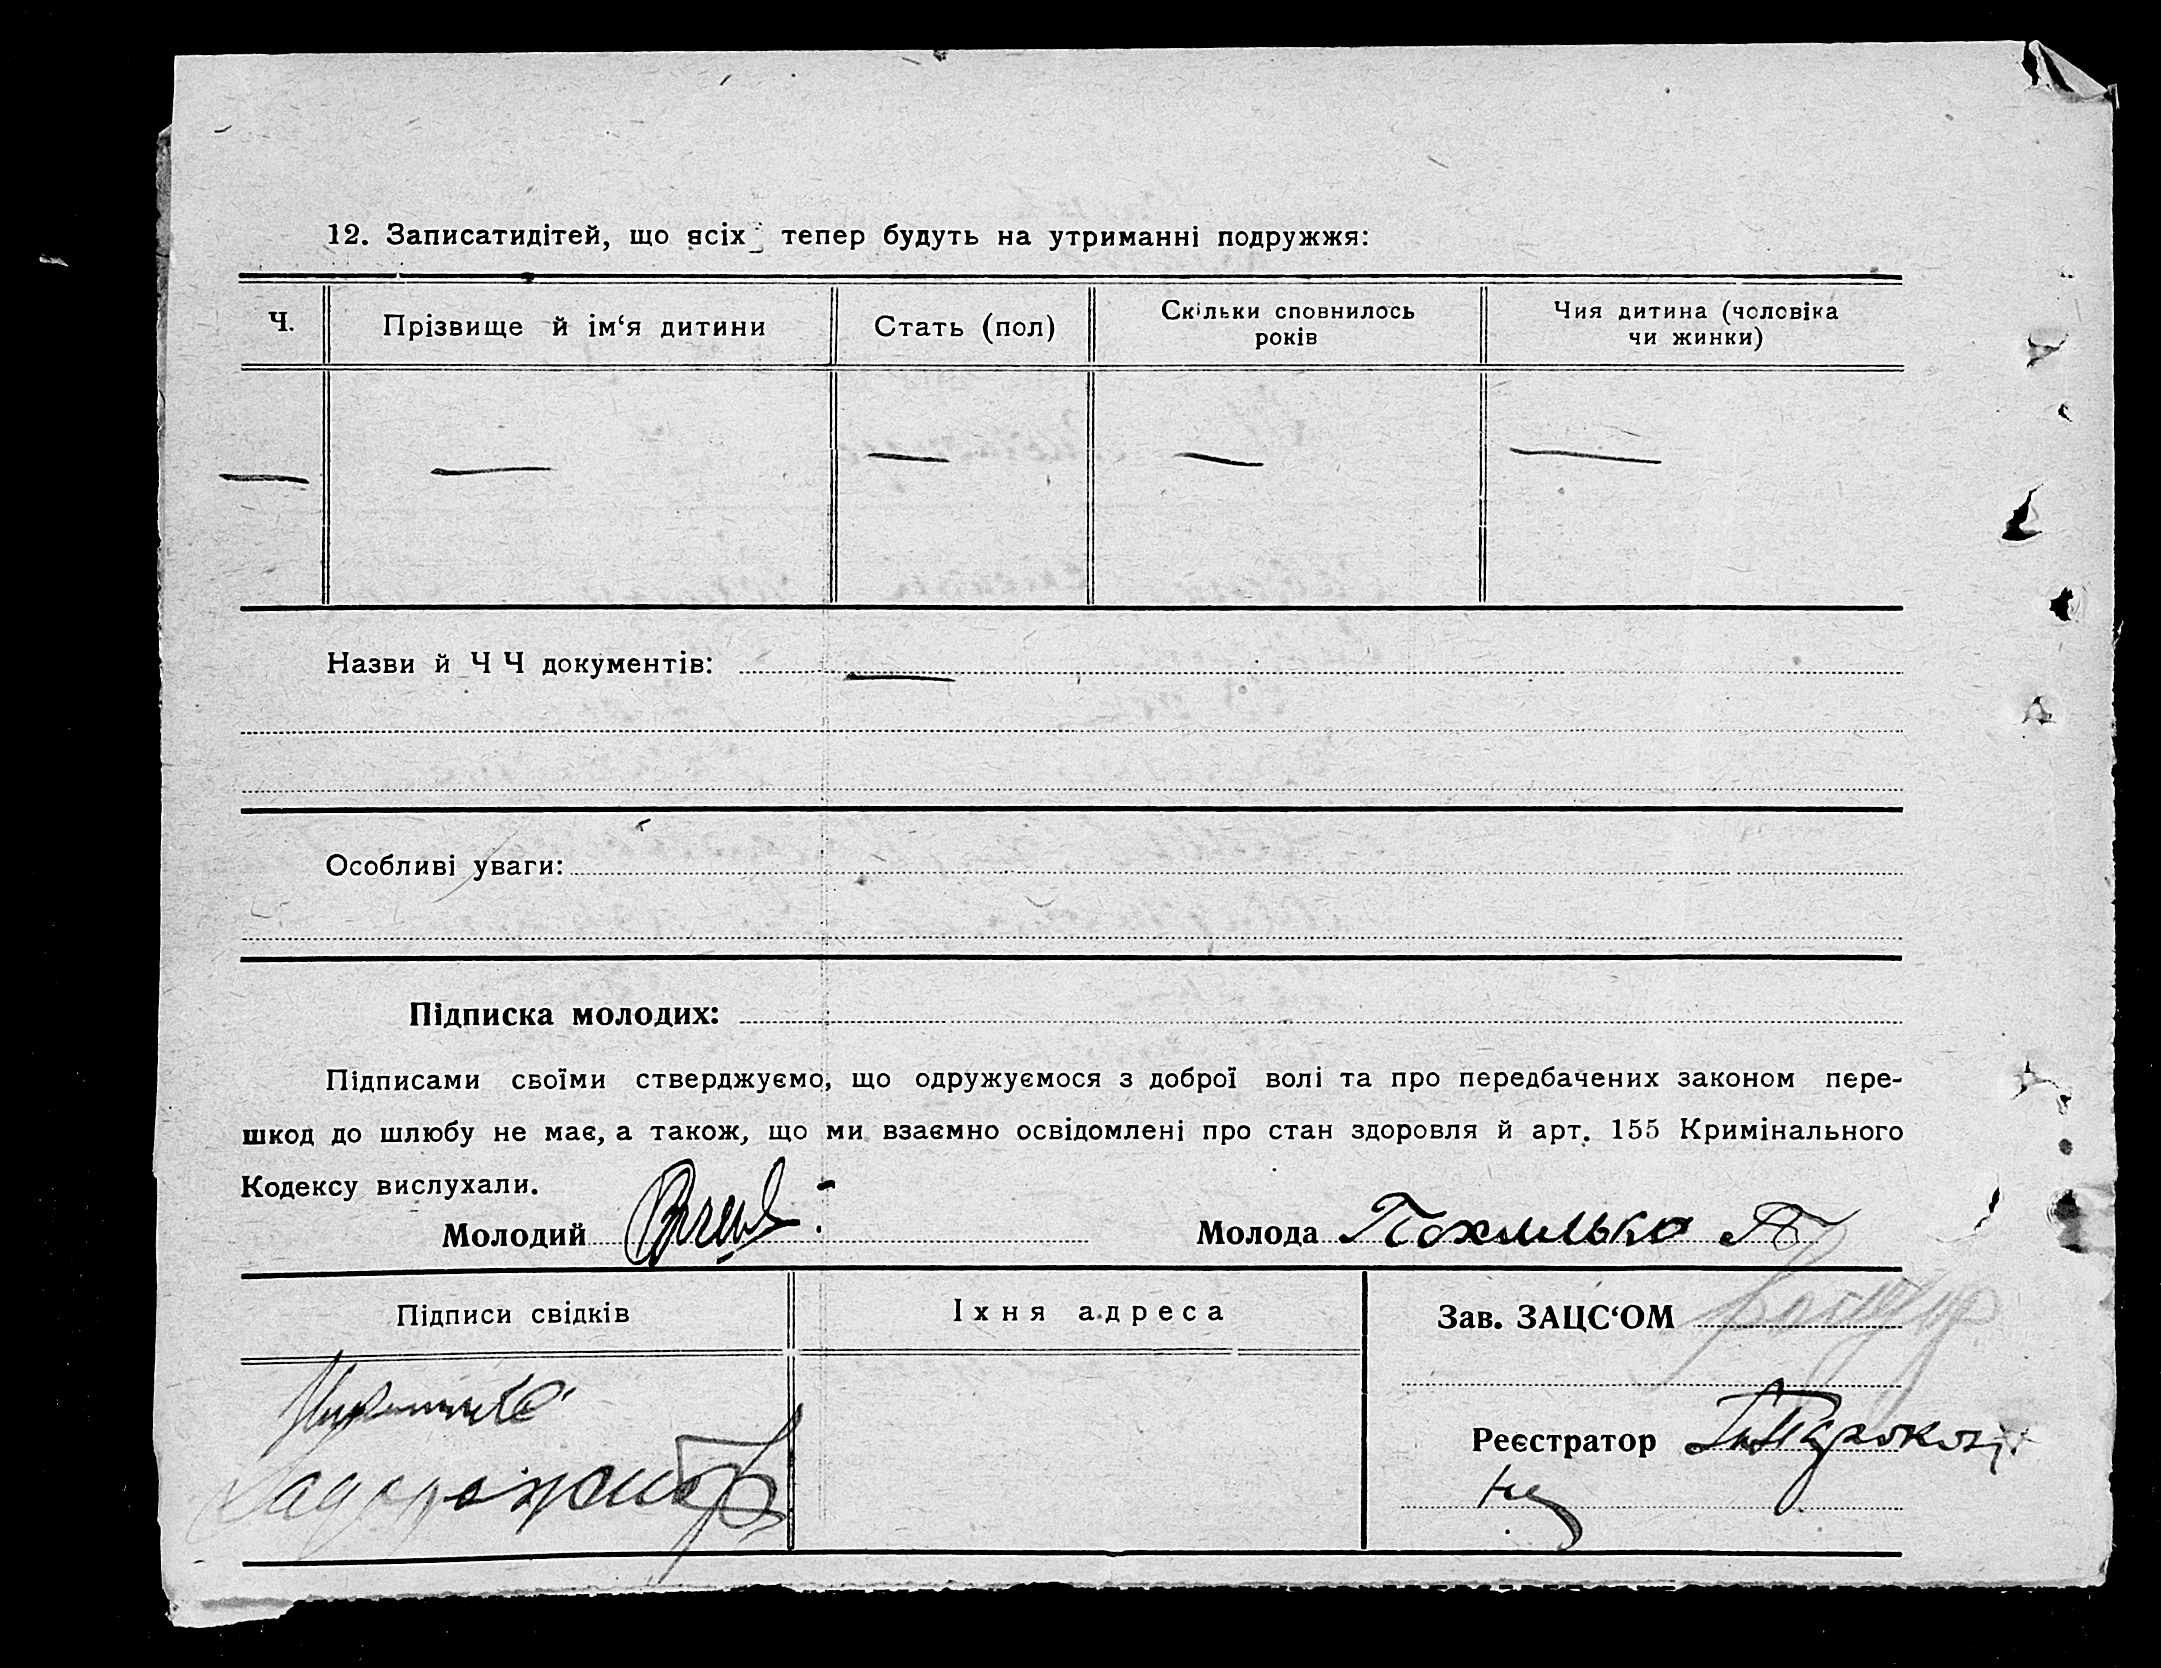 12. Записатидітей, що всіх тепер будуть на утриманні подружжя:
Ч.
Прізвище й ім‘я дитини
Стать (пол)
Скільки сповнилось
років
Чия дитина (чоловіка
чи жинки)
— — — — —
Назви й ЧЧ документів: —
Особливі уваги:
Підписка молодих:
Підписами своїми стверджуємо, що одружуємося з доброї волі та про передбачених законом пере-
шкод до шлюбу не має, а також, що ми взаємно освідомлені про стан здоровля й арт. 155 Кримінального
Кодексу вислухали.
Молодий
Молода Похилько П
Підписи свідків
Їхня адреса
Зав. ЗАЦС‘ОМ
Реєстратор